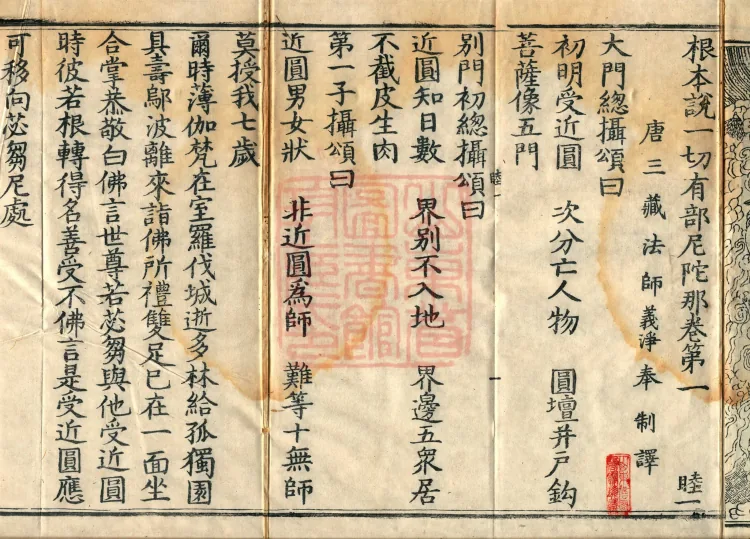 根本說一切有部尼陀那卷第一 睦一
唐三藏法師義淨奉制譯
大門總攝頌曰
初明受近圓 次分亡人物 圓壇并戶鉤
菩薩像五門
別門初總攝頌曰
近圓知日數 界別不入地 界邊五衆居
不截皮生肉
第一子攝頌曰
近圓男女狀 非近圓爲師 難等十無師
莫授我七歲
爾時薄伽梵在室羅伐城逝多林給孤獨園
具壽鄔波離來詣佛所禮雙足已在一面坐
合掌恭敬白佛言世尊若苾芻與他受近圓
時彼若根轉得名善受不佛言是受近圓應
可移向苾芻尼處
睦一